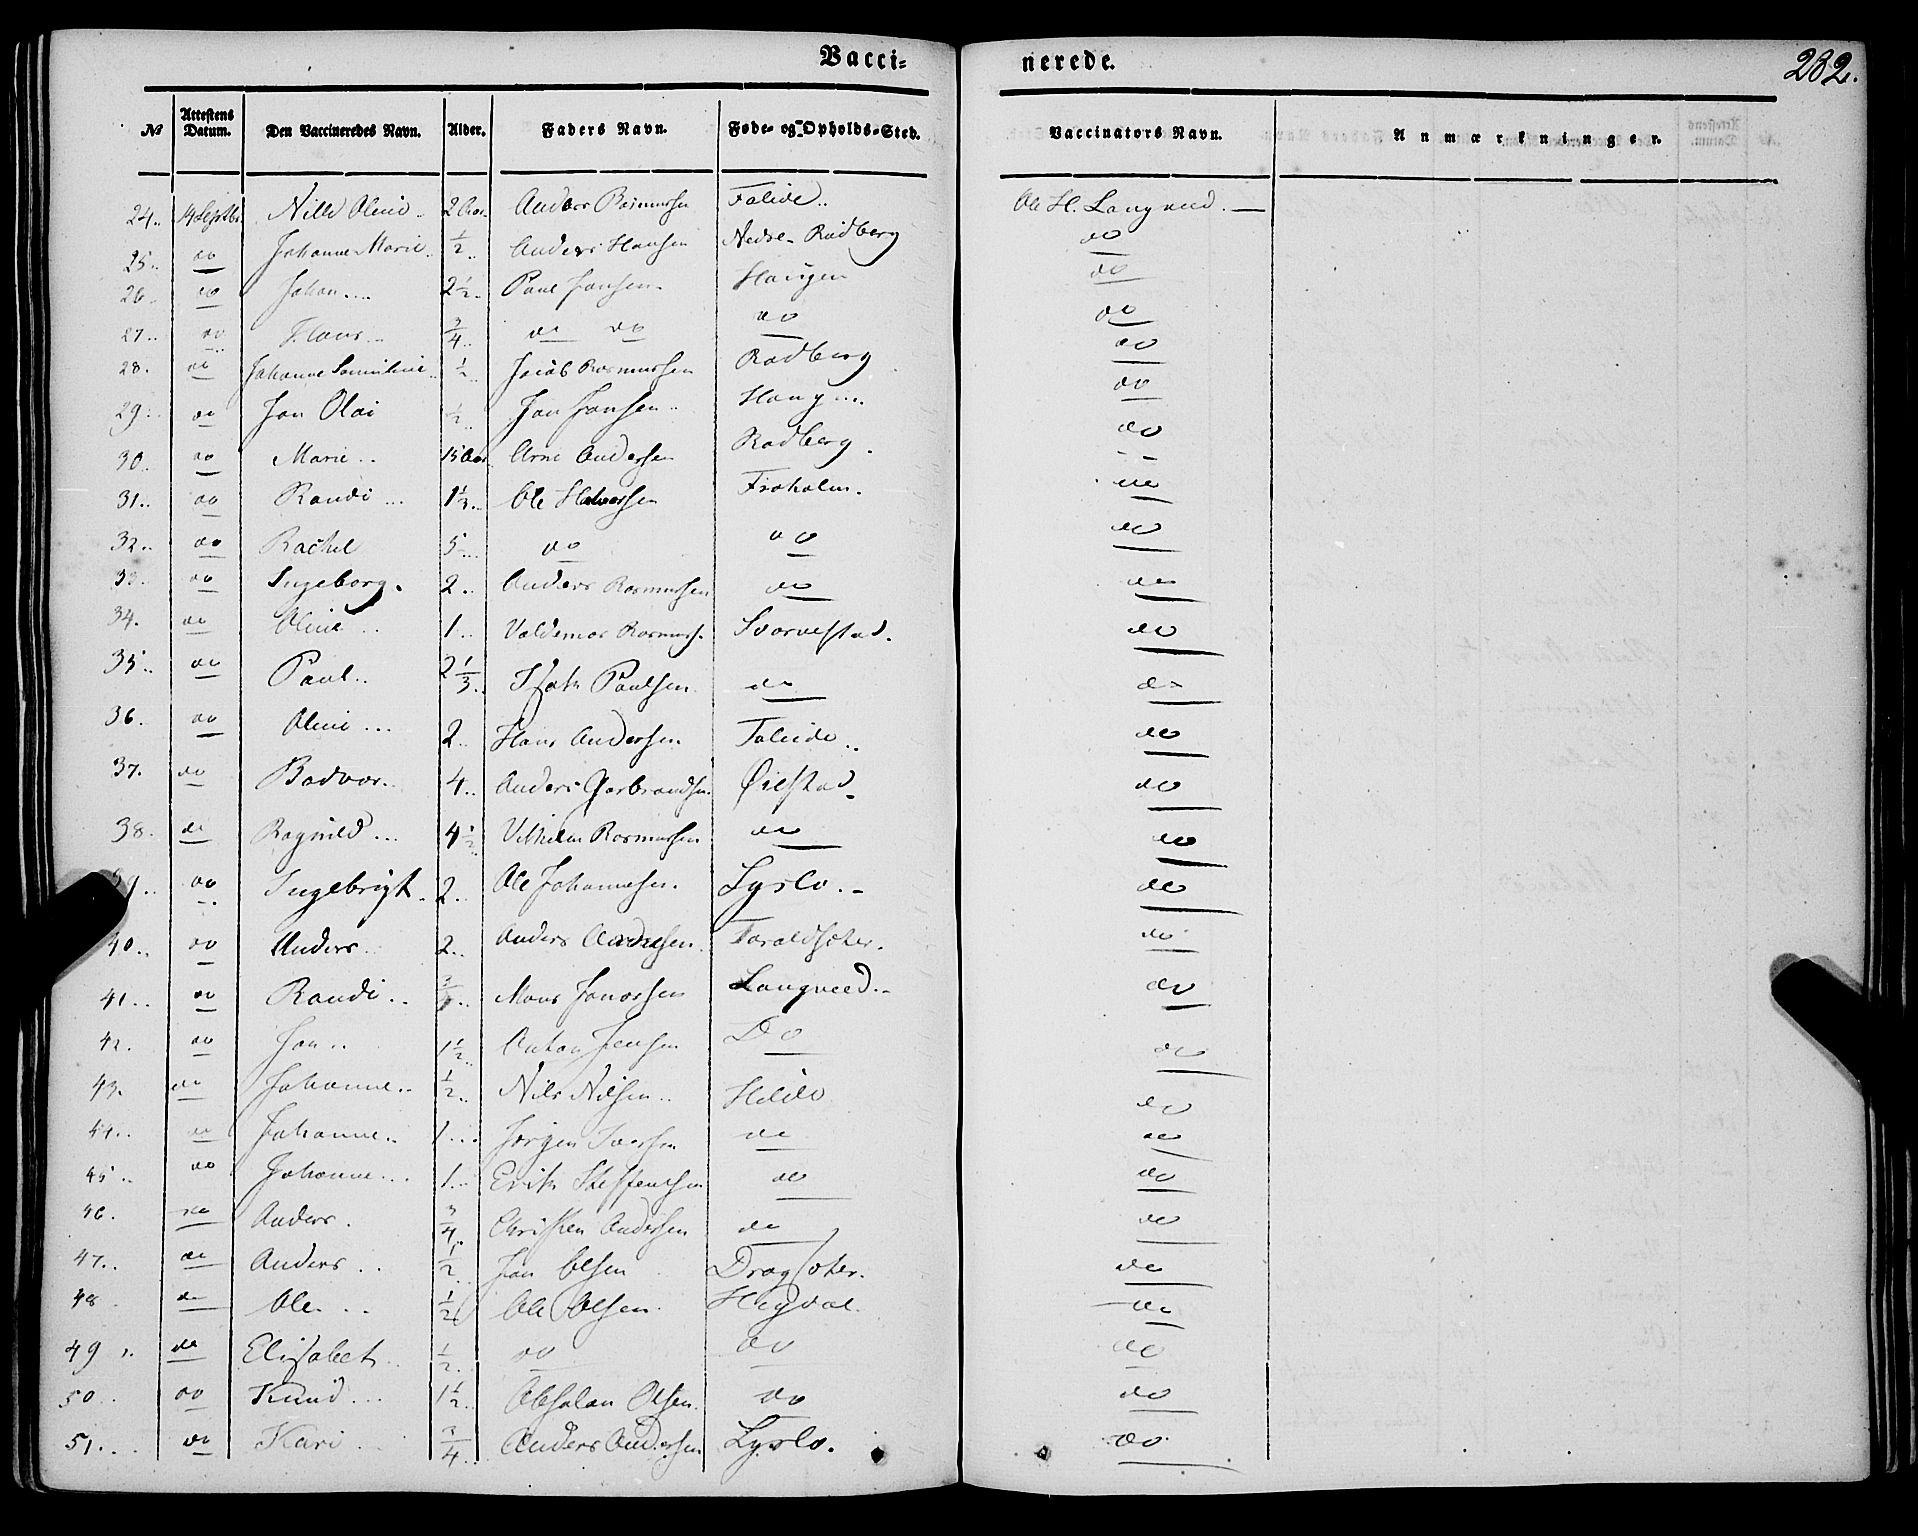 Vacci- nerede. 232.
№ Attestens Datum. Den Vaccineredes Navn. Alder. Faders Navn. Føde- og Opholds-Sted. Vaccinators Navn. Anmærkninger.
24.. 14 Septbr. Nille Oline.. 2 Aar. Anders Rasmussen Taleide.. Ole H. Langveed. —
25.. do Johanne Marie. ½.. Anders Hansen Nedre Rødberg do
26. do Johan.... 2½.. Paul Jonsen. Haugen do
27.. do Hans... ¾.. do do do do
28. do Johanne ½.. Jacob Rasmussen Rødberg do
29.. do Jon Olai ½.. Jon Jonsen.. Haugen do
30. do Marie.. 13 Aar Arne Andersen Rødberg. do
31.. do Randi... 1½.. Ole Halvorsen Froholm. do
32.. do Rachel 5... do do do
33. do Ingeborg. 2.. Anders Rasmussen do do
34. do Oline.. 1.. Valdemar Rasmuss. Svorvestad. do
35.. do Paul.. 2⅓.. Isak Paulsen. do do
36. do Oline... 2.. Hans Andersen Taleide.. do
37. do Bodvor.. 4.. Anders Garbrandsen. Øilstad. do
38. do Ragnild... 4½.. Vilhelm Rasmussen do do
39.. do Ingebrigt. 2.. Ole Johannesen. Lyslo.- do
40.. do Anders.. 2.. Anders Andresen. Taraldseter. do
41.. do Randi.. Mons Jonassen Langveed.- do
42. do Jon.. 1½.. Anton Jensen Do do
43. do Johanne.. ½.. Nils Nilsen.. Hilde do
44.. do Johanne.. 1... Jørgen Iversen do do
45.. do Johanne... 1... Erik Steffensen do do
46. do Anders. ¾.. Christen Andersen do do
47.. do Anders.. ½.. Jon Olsen Dragseter. do
48 do Ole... ½.. Ole Olsen. Hegdal. do
49. do Elisabet.. ½.. do do do
50.. do Knud... 1½.. Absalon Olsen. do do
51... do Kari.. ¾.. Anders Andersen Lyslo. do